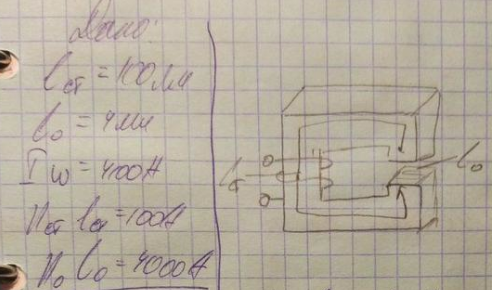 Дано:
lст = 100мм
l₀ = 4мм
Iw = 4100А
Hст lст = 100А
H₀ l₀ = 4000А
l₀